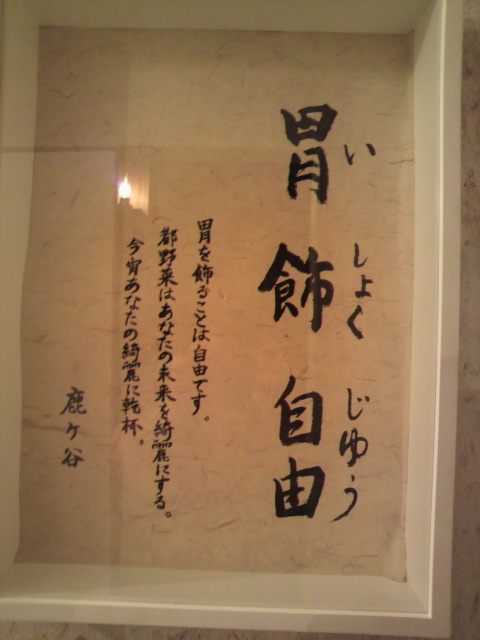 胃飾自由
いしょくじゆう
胃を飾ることは自由です。
都野菜はあなたの未来を綺麗にする。
今宵あなたの綺麗に乾杯。
鹿ヶ谷